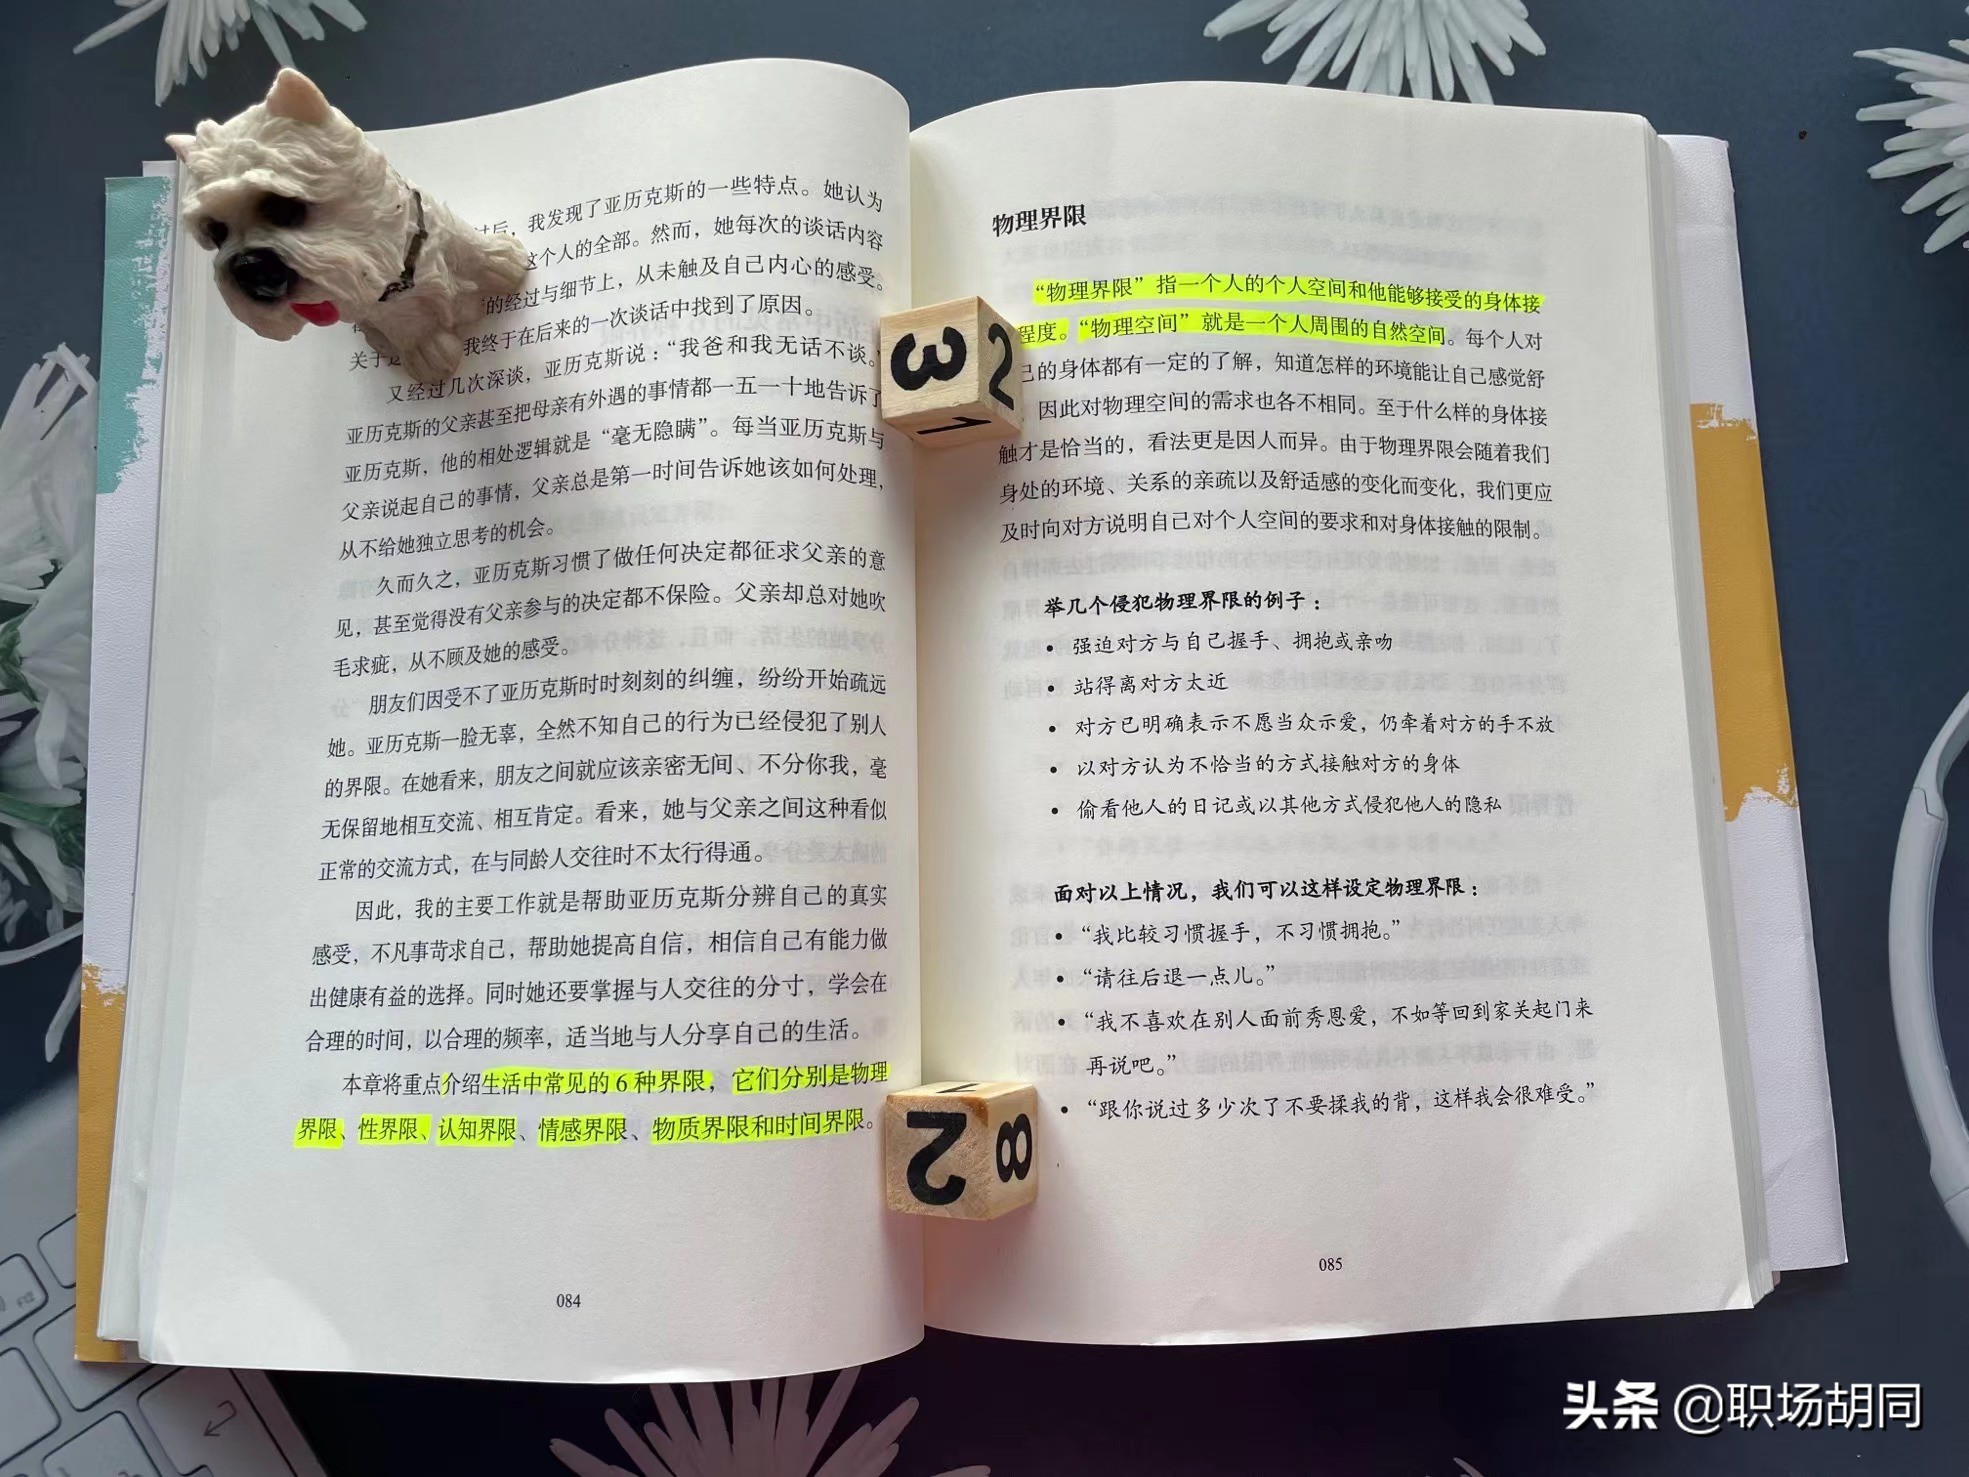 后，我发现了亚历克斯的一些特点。她认为
这个人的全部。然而，她每次的谈话内容
的经过与细节上，从未触及自己内心的感受。
关于 我终于在后来的一次谈话中找到了原因。
又经过几次深谈，亚历克斯说：“我爸和我无话不谈。
亚历克斯的父亲甚至把母亲有外遇的事情都一五一十地告诉了
亚历克斯，他的相处逻辑就是“毫无隐瞒”。每当亚历克斯与
父亲说起自己的事情，父亲总是第一时间告诉她该如何处理，
从不给她独立思考的机会。
久而久之，亚历克斯习惯了做任何决定都征求父亲的意
见，甚至觉得没有父亲参与的决定都不保险。父亲却总对她吹
毛求疵，从不顾及她的感受。
朋友们因受不了亚历克斯时时刻刻的纠缠，纷纷开始疏远
她。亚历克斯一脸无辜，全然不知自己的行为已经侵犯了别人
的界限。在她看来，朋友之间就应该亲密无间、不分你我，毫
无保留地相互交流、相互肯定。看来，她与父亲之间这种看似
正常的交流方式，在与同龄人交往时不太行得通。
因此，我的主要工作就是帮助亚历克斯分辨自己的真实
感受，不凡事苛求自己，帮助她提高自信，相信自己有能力做
出健康有益的选择。同时她还要掌握与人交往的分寸，学会在
合理的时间，以合理的频率，适当地与人分享自己的生活。
本章将重点介绍生活中常见的 6 种界限，它们分别是物理
界限、性界限、认知界限、情感界限、物质界限和时间界限。
084
物理界限
“物理界限”指一个人的个人空间和他能够接受的身体接
程度。“物理空间”就是一个人周围的自然空间。每个人对
己的身体都有一定的了解，知道怎样的环境能让自己感觉舒
，因此对物理空间的需求也各不相同。至于什么样的身体接
触才是恰当的，看法更是因人而异。由于物理界限会随着我们
身处的环境、关系的亲疏以及舒适感的变化而变化，我们更应
及时向对方说明自己对个人空间的要求和对身体接触的限制。
举几个侵犯物理界限的例子：
• 强迫对方与自己握手、拥抱或亲吻
• 站得离对方太近
• 对方已明确表示不愿当众示爱，仍牵着对方的手不放
• 以对方认为不恰当的方式接触对方的身体
• 偷看他人的日记或以其他方式侵犯他人的隐私
面对以上情况，我们可以这样设定物理界限：
• “我比较习惯握手，不习惯拥抱。”
• “请往后退一点儿。”
• “我不喜欢在别人面前秀恩爱，不如等回到家关起门来
再说吧。”
• “跟你说过多少次了不要揉我的背，这样我会很难受。”
085
3 2 1
2 8
F12
头条 @职场胡同